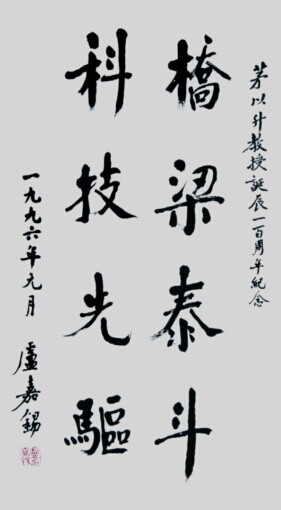 茅以升教授誕辰一百周年紀念
橋梁泰斗
科技先驅
一九九六年元月
盧嘉錫